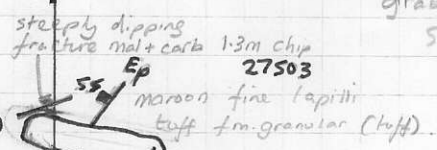 steeply dipping
fracture mal + carb 1.3m chip
27503
55 Ep
maroon fine lapilli
tuff fm. granular (tuff).